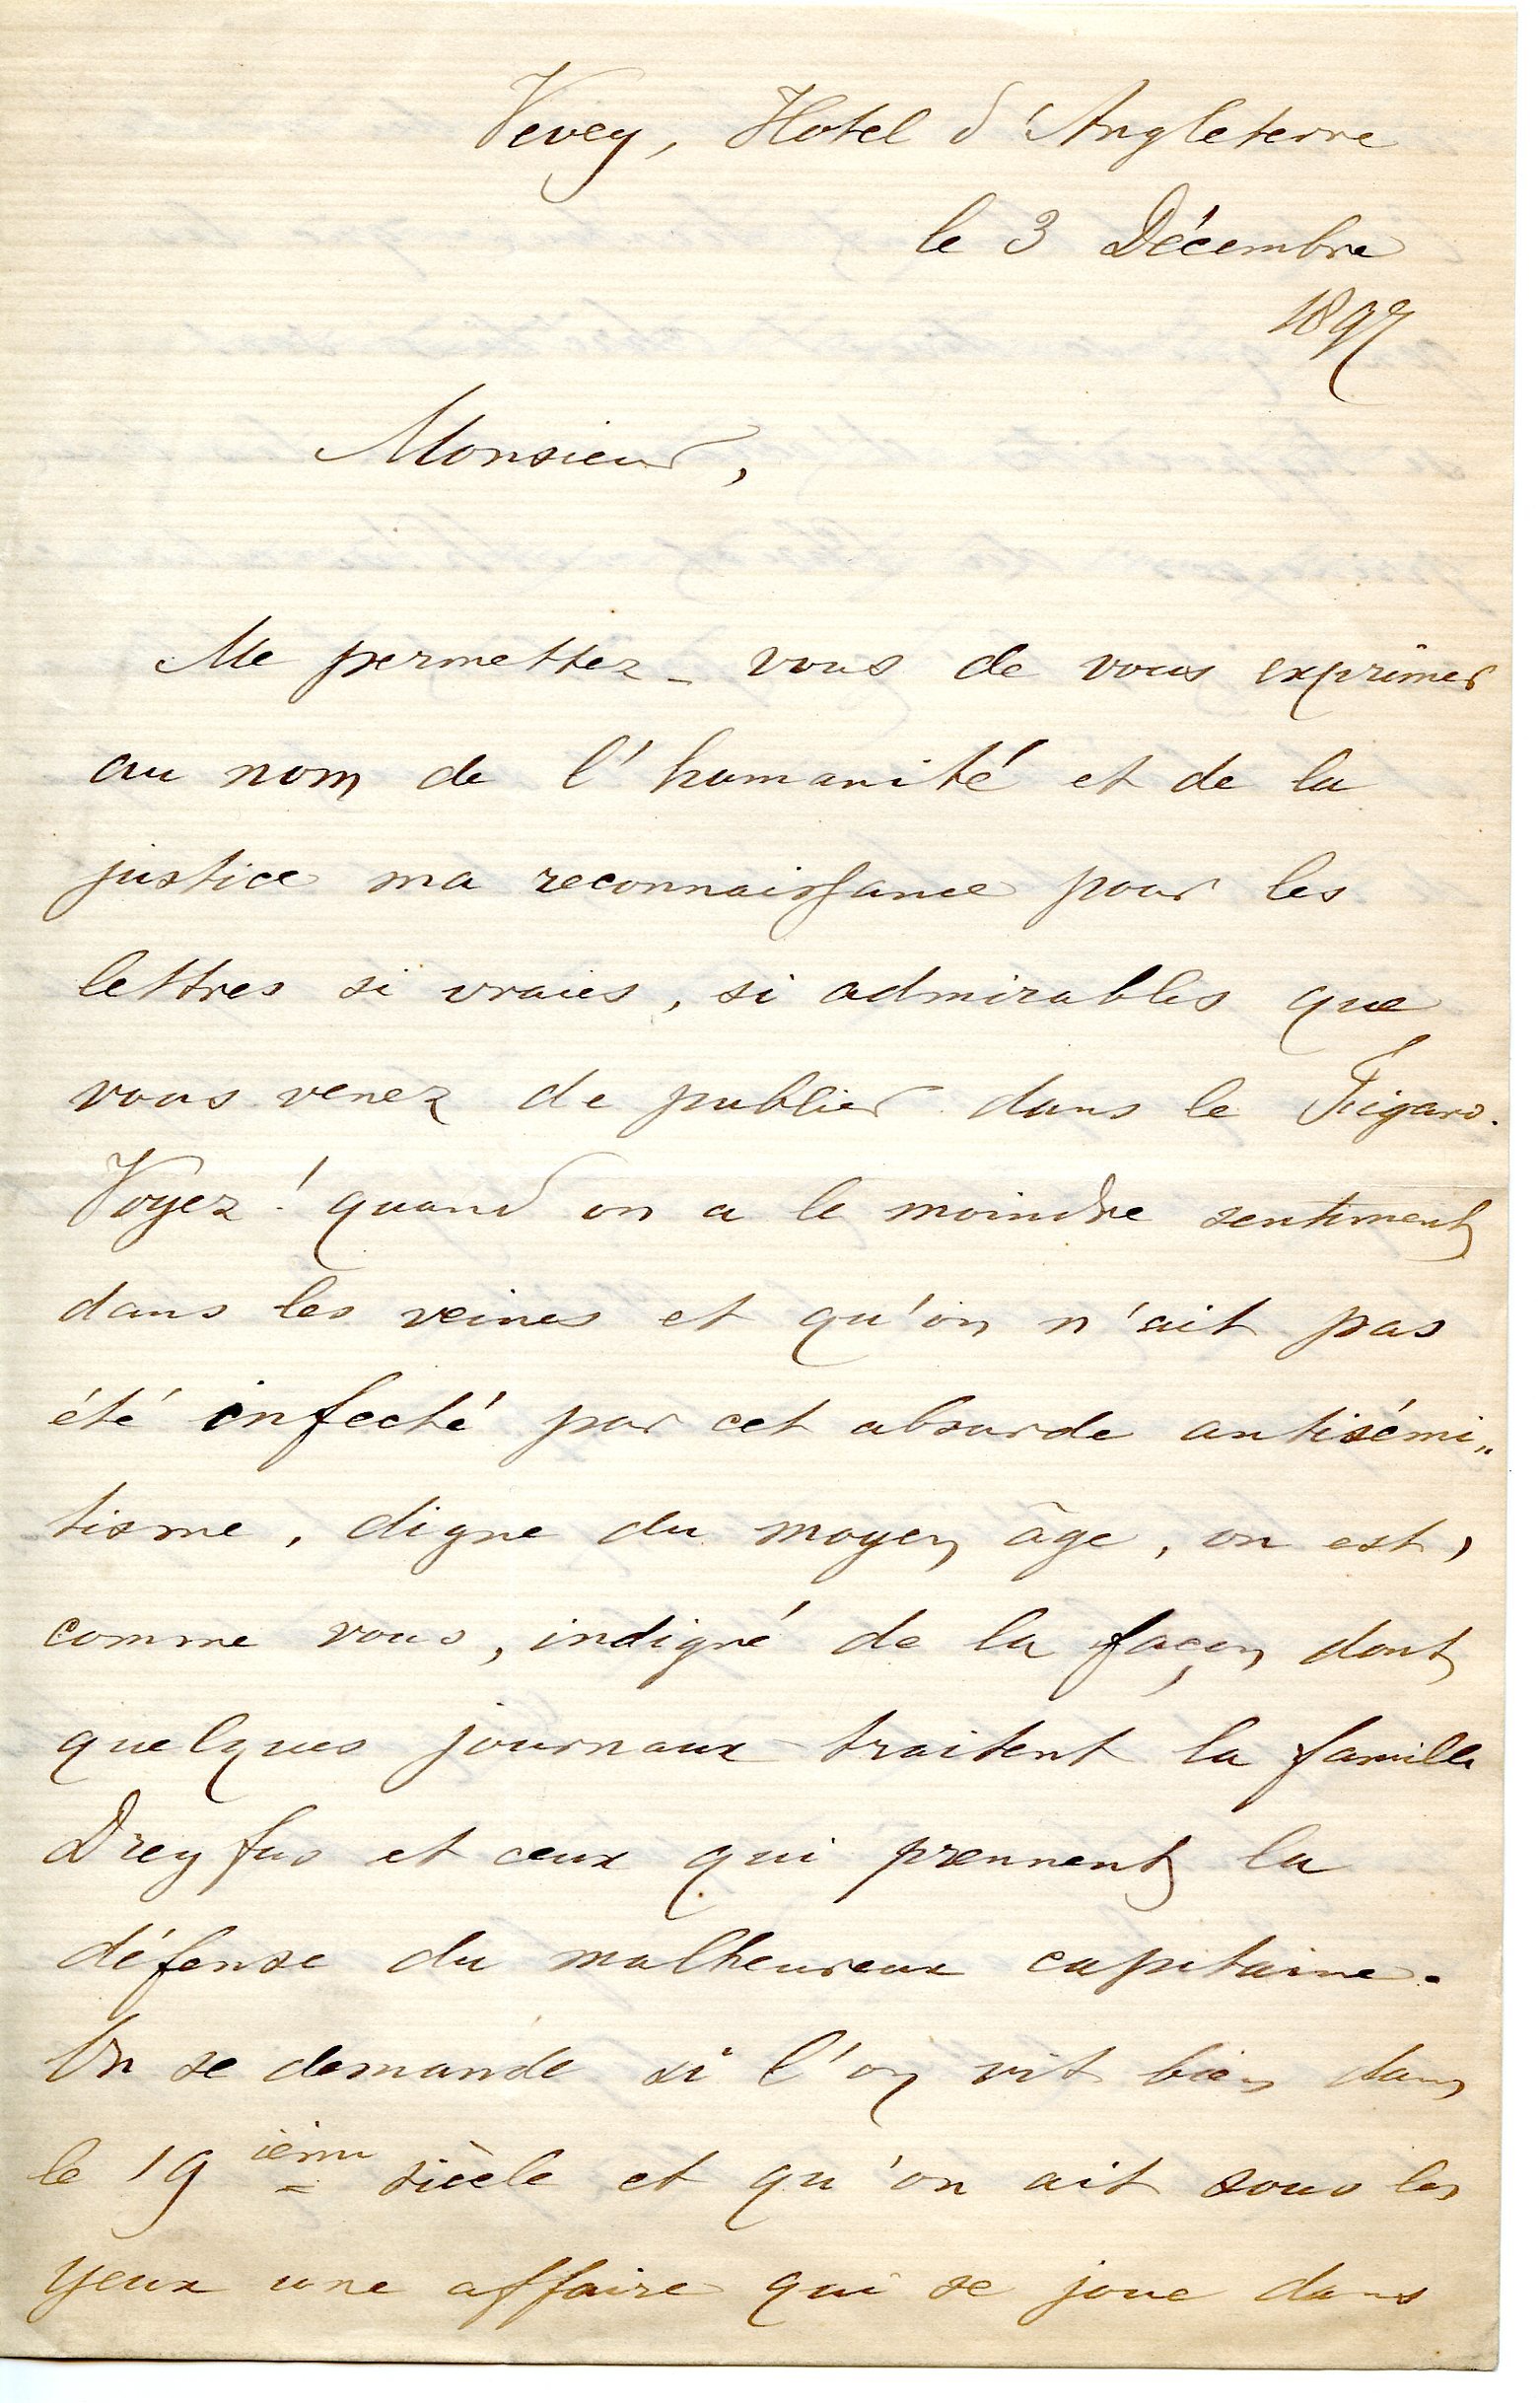 Vevey, Hotel d'Angleterre
le 3 Décembre
1897
Monsieur,
Me permettez-vous de vous exprimer
au nom de l'humanité et de la
justice ma reconnaissance pour les
lettres si vraies, si admirables que
vous venez de publier dans le Figaro.
Voyez! quand on a le moindre sentiment
dans les veines et qu'on n'ait pas
été infecté par cet absurde antisémi„
tisme, digne du moyen âge, on est,
comme vous, indigné de la façon dont
quelques journaux traitent la famille
Dreyfus et ceux qui prennent la
défense du malheureux capitaine.
On se demande si l'on vit bien dans
le 19ième siècle et qu'on ait sous les
yeux une affaire qui se joue dans